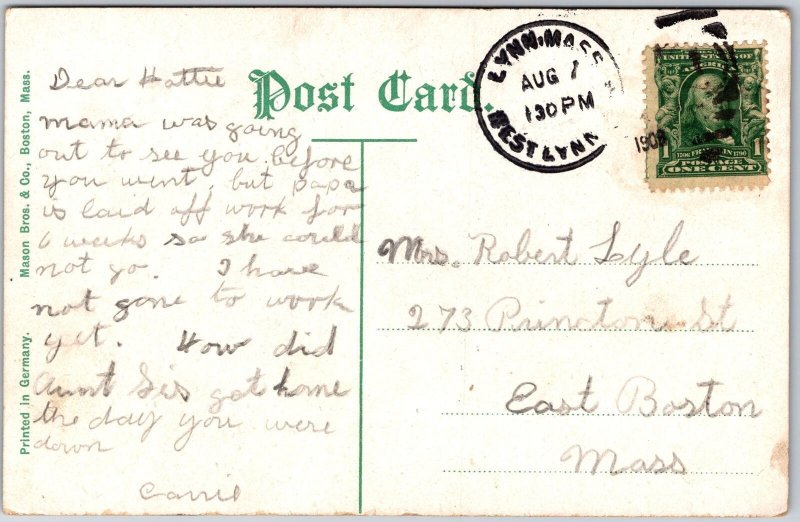 Post Card.
Dear Hattie
mama was going
out to see you before
you went, but papa
is laid off work for
6 weeks so she could
not go. I have
not gone to work
yet. How did
Aunt Sis get home
the day you were
down
Carrie
LYNN, MASS.
AUG 7
130 PM
WEST LYNN
1908
UNITED STATES OF
AMERICA
1 1
1706 FRANKLIN 1790
POSTAGE
ONE CENT
Mrs. Robert Lyle
273 Princton St
East Boston
Mass
Printed in Germany. Mason Bros. & Co., Boston, Mass.